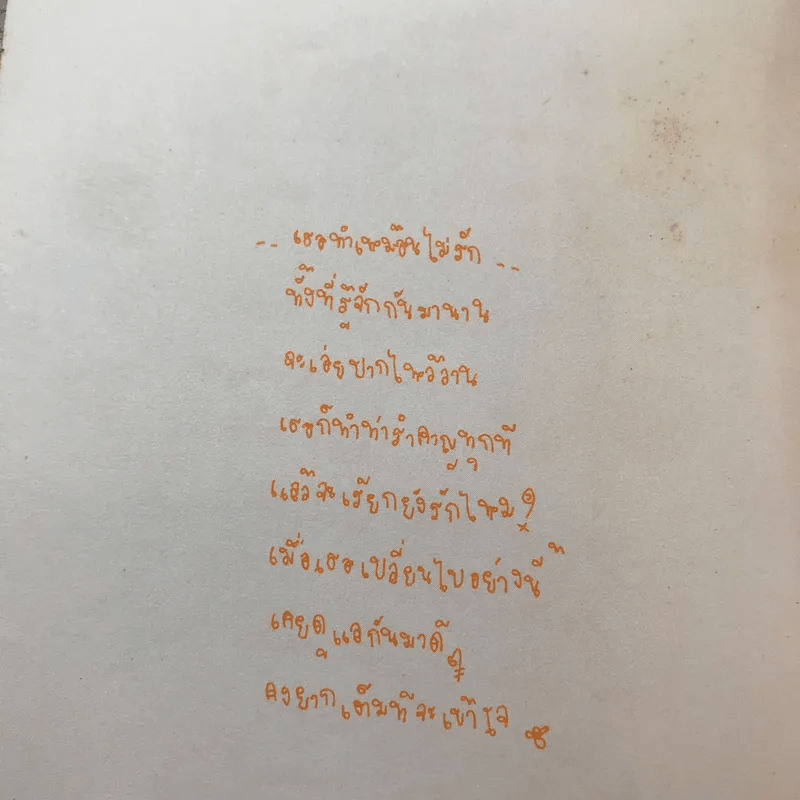 -- เธอทำเหมือนไม่รัก --
ทั้งที่รู้จักกันมานาน
จะเอ่ยปากไหว้วาน
เธอก็ทำท่ารำคาญทุกที
แล้วจะเรียกยังรักไหม?
เมื่อเธอเปลี่ยนไปอย่างนี้
เคยดูแลกันมาดีๆ
คงยากเต็มทีจะเข้าใจ